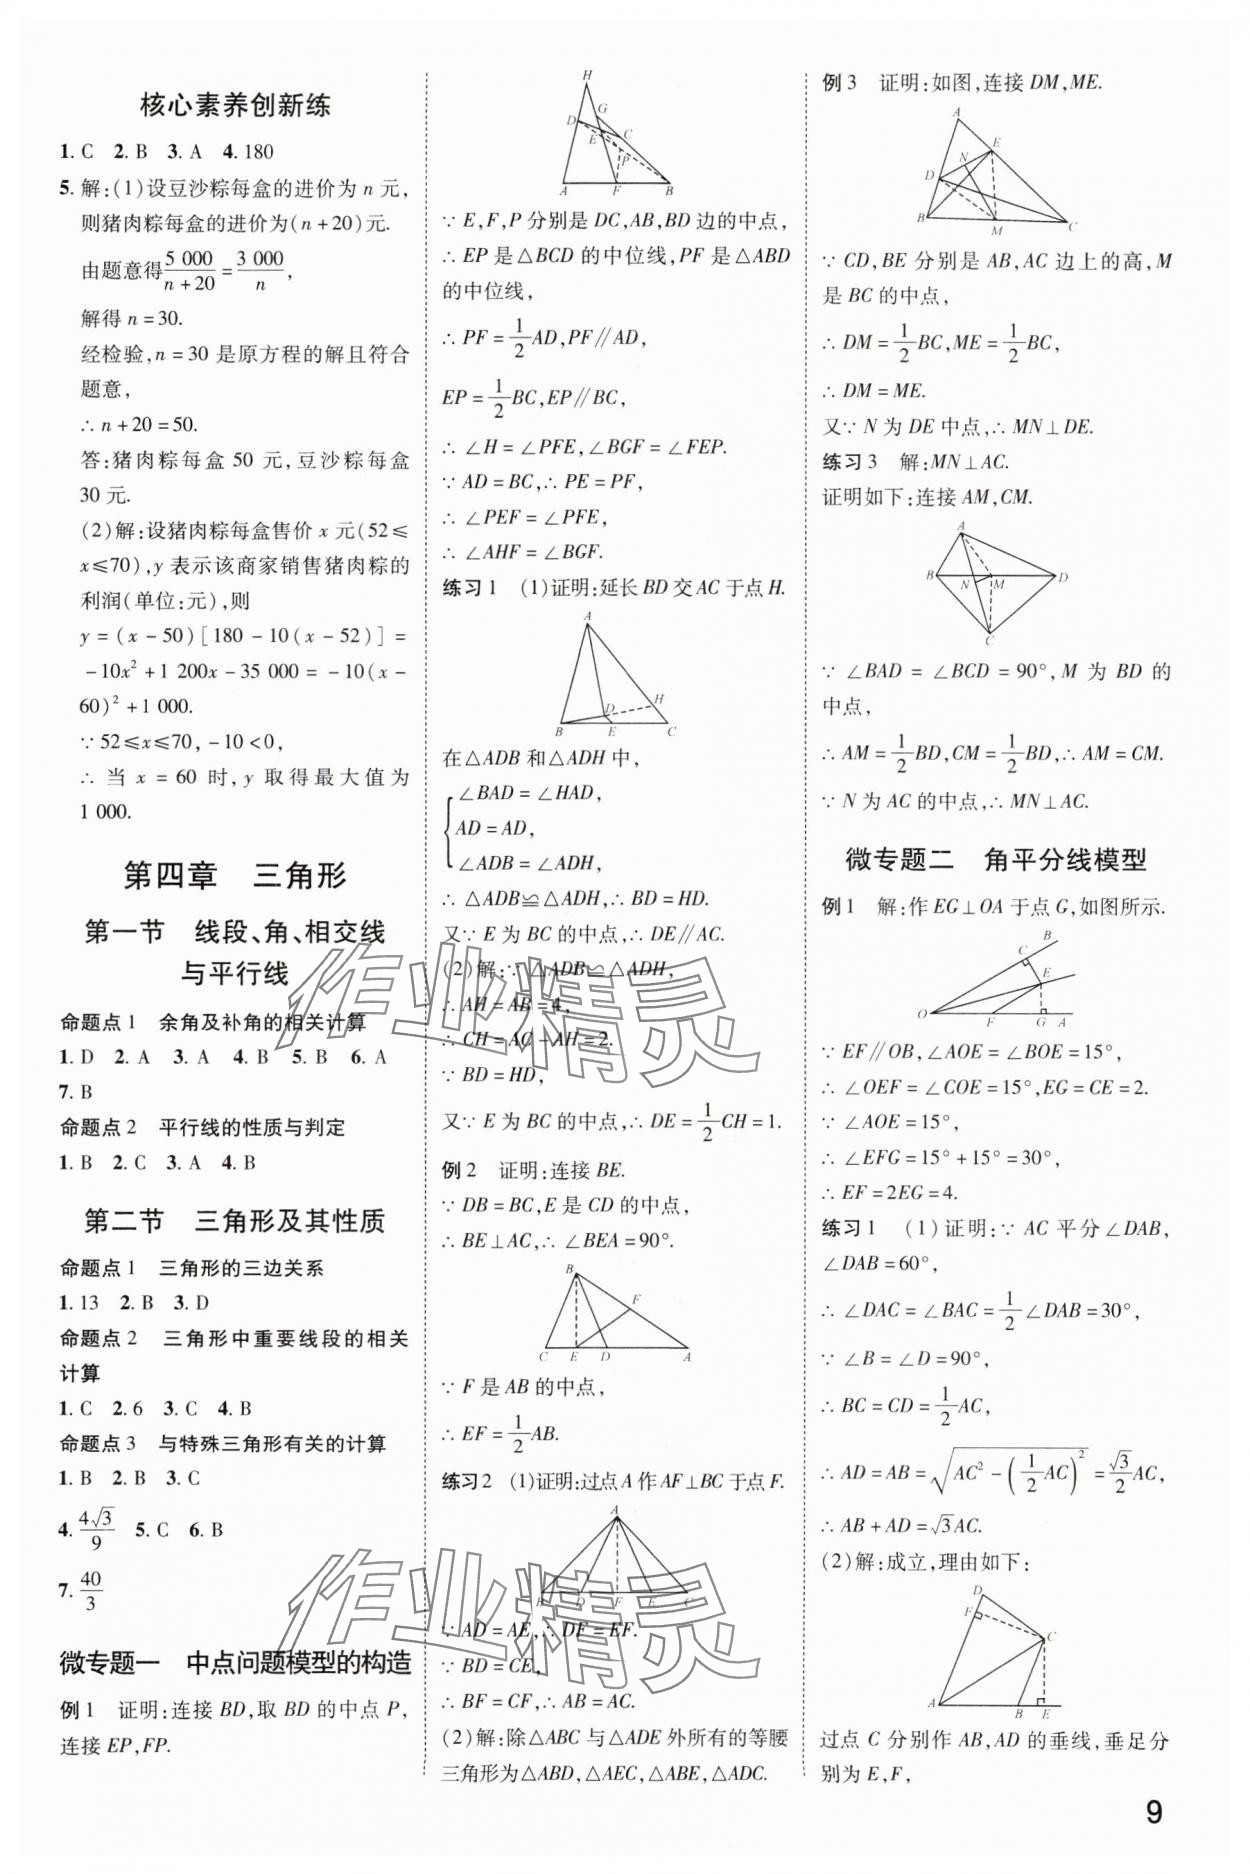 核心素养创新练
1. C 2. B 3. A 4. 180
5. 解:(1)设豆沙粽每盒的进价为 n 元,
则猪肉粽每盒的进价为(n+20)元.
由题意得5 000/(n+20)=3 000/n,
解得 n=30.
经检验,n=30 是原方程的解且符合
题意,
∴ n+20=50.
答:猪肉粽每盒 50 元,豆沙粽每盒
30 元.
(2)解:设猪肉粽每盒售价 x 元(52≤
x≤70),y 表示该商家销售猪肉粽的
利润(单位:元),则
y=(x-50)[180-10(x-52)]=
-10x²+1 200x-35 000=-10(x-
60)²+1 000.
∵ 52≤x≤70,-10<0,
∴ 当 x=60 时,y 取得最大值为
1 000.
第四章 三角形
第一节 线段、角、相交线
与平行线
命题点1 余角及补角的相关计算
1. D 2. A 3. A 4. B 5. B 6. A
7. B
命题点2 平行线的性质与判定
1. B 2. C 3. A 4. B
第二节 三角形及其性质
命题点1 三角形的三边关系
1. 13 2. B 3. D
命题点2 三角形中重要线段的相关
计算
1. C 2. 6 3. C 4. B
命题点3 与特殊三角形有关的计算
1. B 2. B 3. C
4. 4√3/9 5. C 6. B
7. 40/3
微专题一 中点问题模型的构造
例1 证明:连接 BD,取 BD 的中点 P,
连接 EP,FP.
H
G
D
C
E
P
A F B
∵ E,F,P 分别是 DC,AB,BD 边的中点,
∴ EP 是△BCD 的中位线,PF 是△ABD
的中位线,
∴ PF=1/2AD,PF∥AD,
EP=1/2BC,EP∥BC,
∴ ∠H=∠PFE,∠BGF=∠FEP.
∵ AD=BC,∴ PE=PF,
∴ ∠PEF=∠PFE,
∴ ∠AHF=∠BGF.
练习1 (1)证明:延长 BD 交 AC 于点 H.
A
D H
B E C
在△ADB 和△ADH 中,
∠BAD=∠HAD,
AD=AD,
∠ADB=∠ADH,
∴ △ADB≌△ADH,∴ BD=HD.
又∵ E 为 BC 的中点,∴ DE∥AC.
(2)解:∵ △ADB≌△ADH,
∴ AH=AB=4,
∴ CH=AC-AH=2.
∵ BD=HD,
又∵ E 为 BC 的中点,∴ DE=1/2CH=1.
例2 证明:连接 BE.
∵ DB=BC,E 是 CD 的中点,
∴ BE⊥AC,∴ ∠BEA=90°.
B
F
C E D A
∵ F 是 AB 的中点,
∴ EF=1/2AB.
练习2 (1)证明:过点 A 作 AF⊥BC 于点 F.
A
B D F E C
∵ AD=AE,∴ DF=EF.
∵ BD=CE,
∴ BF=CF,∴ AB=AC.
(2)解:除△ABC 与△ADE 外所有的等腰
三角形为△ABD,△AEC,△ABE,△ADC.
例3 证明:如图,连接 DM,ME.
A
N E
D
B M C
∵ CD,BE 分别是 AB,AC 边上的高,M
是 BC 的中点,
∴ DM=1/2BC,ME=1/2BC,
∴ DM=ME.
又∵ N 为 DE 中点,∴ MN⊥DE.
练习3 解:MN⊥AC.
证明如下:连接 AM,CM.
A
B N M D
C
∵ ∠BAD=∠BCD=90°,M 为 BD 的
中点,
∴ AM=1/2BD,CM=1/2BD,∴ AM=CM.
∵ N 为 AC 的中点,∴ MN⊥AC.
微专题二 角平分线模型
例1 解:作 EG⊥OA 于点 G,如图所示.
B
C
E
O F G A
∵ EF∥OB,∠AOE=∠BOE=15°,
∴ ∠OEF=∠COE=15°,EG=CE=2.
∵ ∠AOE=15°,
∴ ∠EFG=15°+15°=30°,
∴ EF=2EG=4.
练习1 (1)证明:∵ AC 平分∠DAB,
∠DAB=60°,
∴ ∠DAC=∠BAC=1/2∠DAB=30°,
∵ ∠B=∠D=90°,
∴ BC=CD=1/2AC,
∴ AD=AB=√(AC²-(1/2AC)²)=√3/2AC,
∴ AB+AD=√3AC.
(2)解:成立,理由如下:
D
F
C
A B E
过点 C 分别作 AB,AD 的垂线,垂足分
别为 E,F,
9
作业精灵
作业精灵